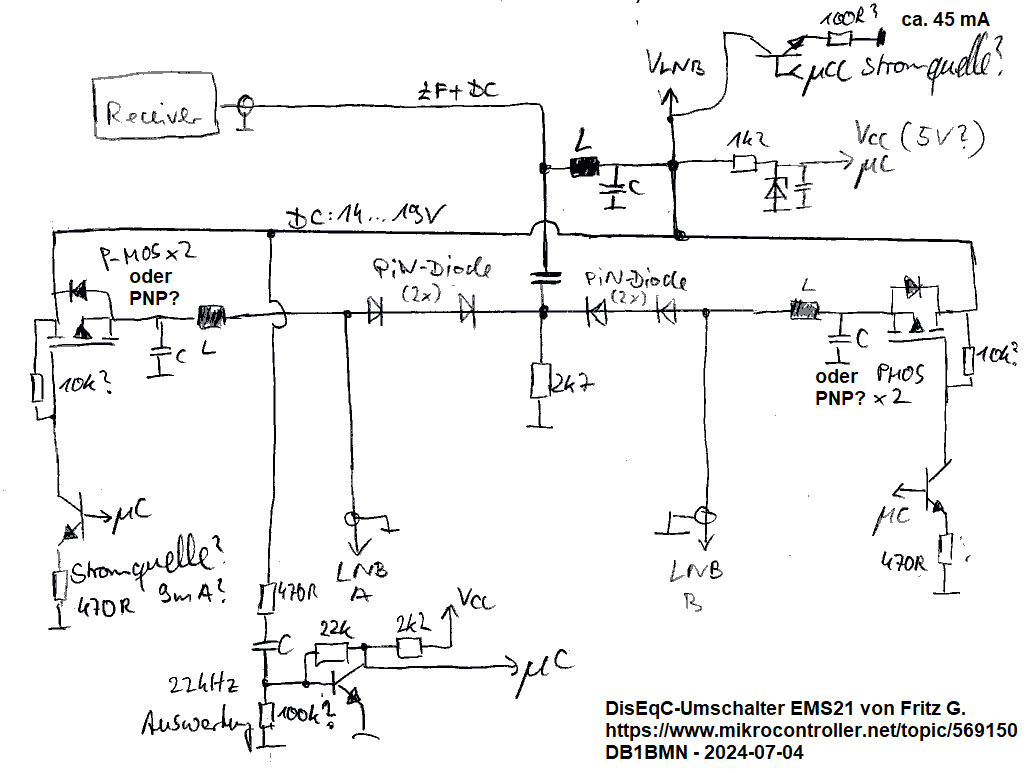 100R?
ca. 45 mA
VLNB
µC
Stromquelle?
Receiver
ZF+DC
L
1k2
Vcc (5V?)
µC
C
DC: 14...19V
P-MOS x2
oder
PNP?
PiN-Diode
(2x)
PiN-Diode
(2x)
L
C
L
C
10k?
2k7
oder
PNP?
PMOS
x2
10k?
µC
µC
Stromquelle?
470R 9mA?
LNB
A
LNB
B
470R
470R
?
Vcc
C
22k
2k2
µC
22kHz
Auswertung
100k?
DisEqC-Umschalter EMS21 von Fritz G.
https://www.mikrocontroller.net/topic/569150
DB1BMN - 2024-07-04